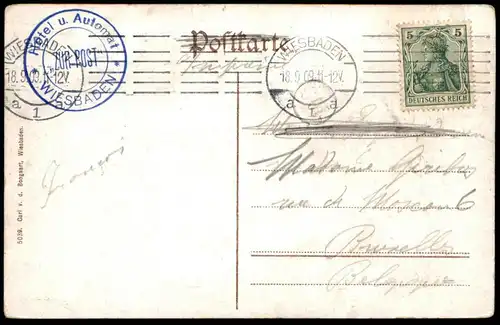 Hotel u. Automat
ZUR POST
* WIESBADEN *
WIESBADEN
18.9.09.11-12V.
a 1 a
Postkarte
WIESBADEN
18.9.09.11-12V.
a 1 a
5 5
DEUTSCHES REICH
François
Madame
rue de
Bruxelles
Belgique
5039. Carl v. d. Boogaart, Wiesbaden.